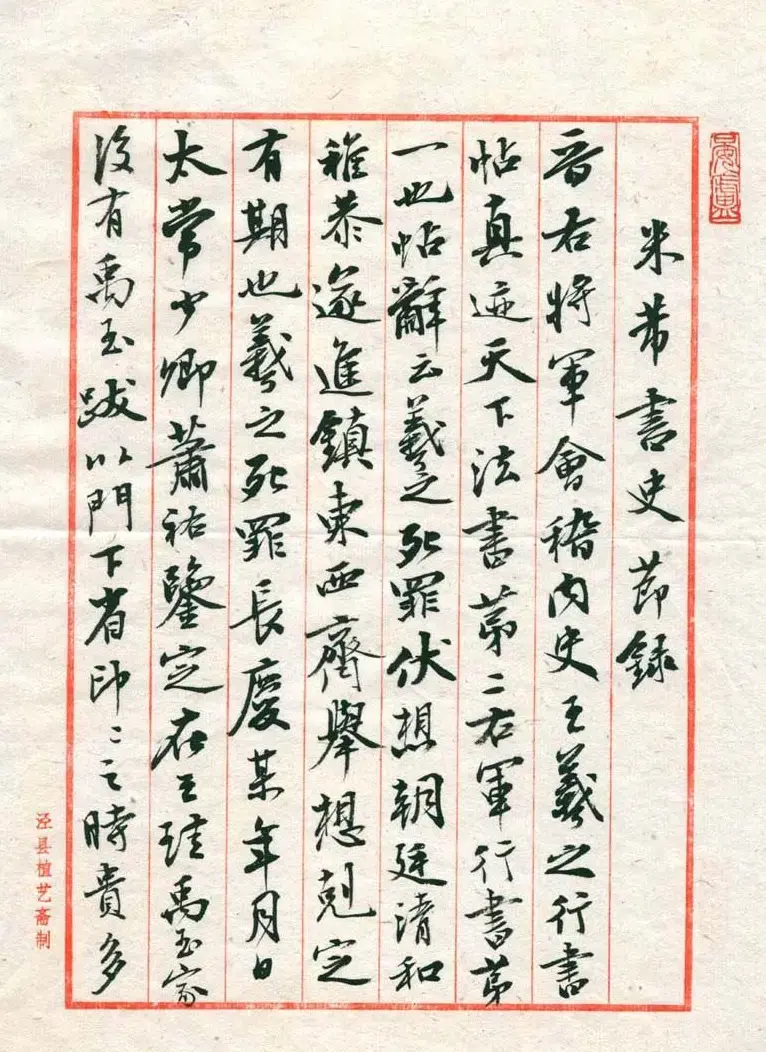 米芾書史節録
晉右將軍會稽内史王羲之行書
帖真迹天下法書第二右軍行書第
一也帖辭云羲之死罪伏想朝廷清和
稚恭遂進鎮東西齊舉想剋定
有期也羲之死罪長慶某年月日
太常少卿蕭祐鑒定在王珪禹玉家
後有禹玉跋以門下省印〻之時貴多
泾县植艺斋制